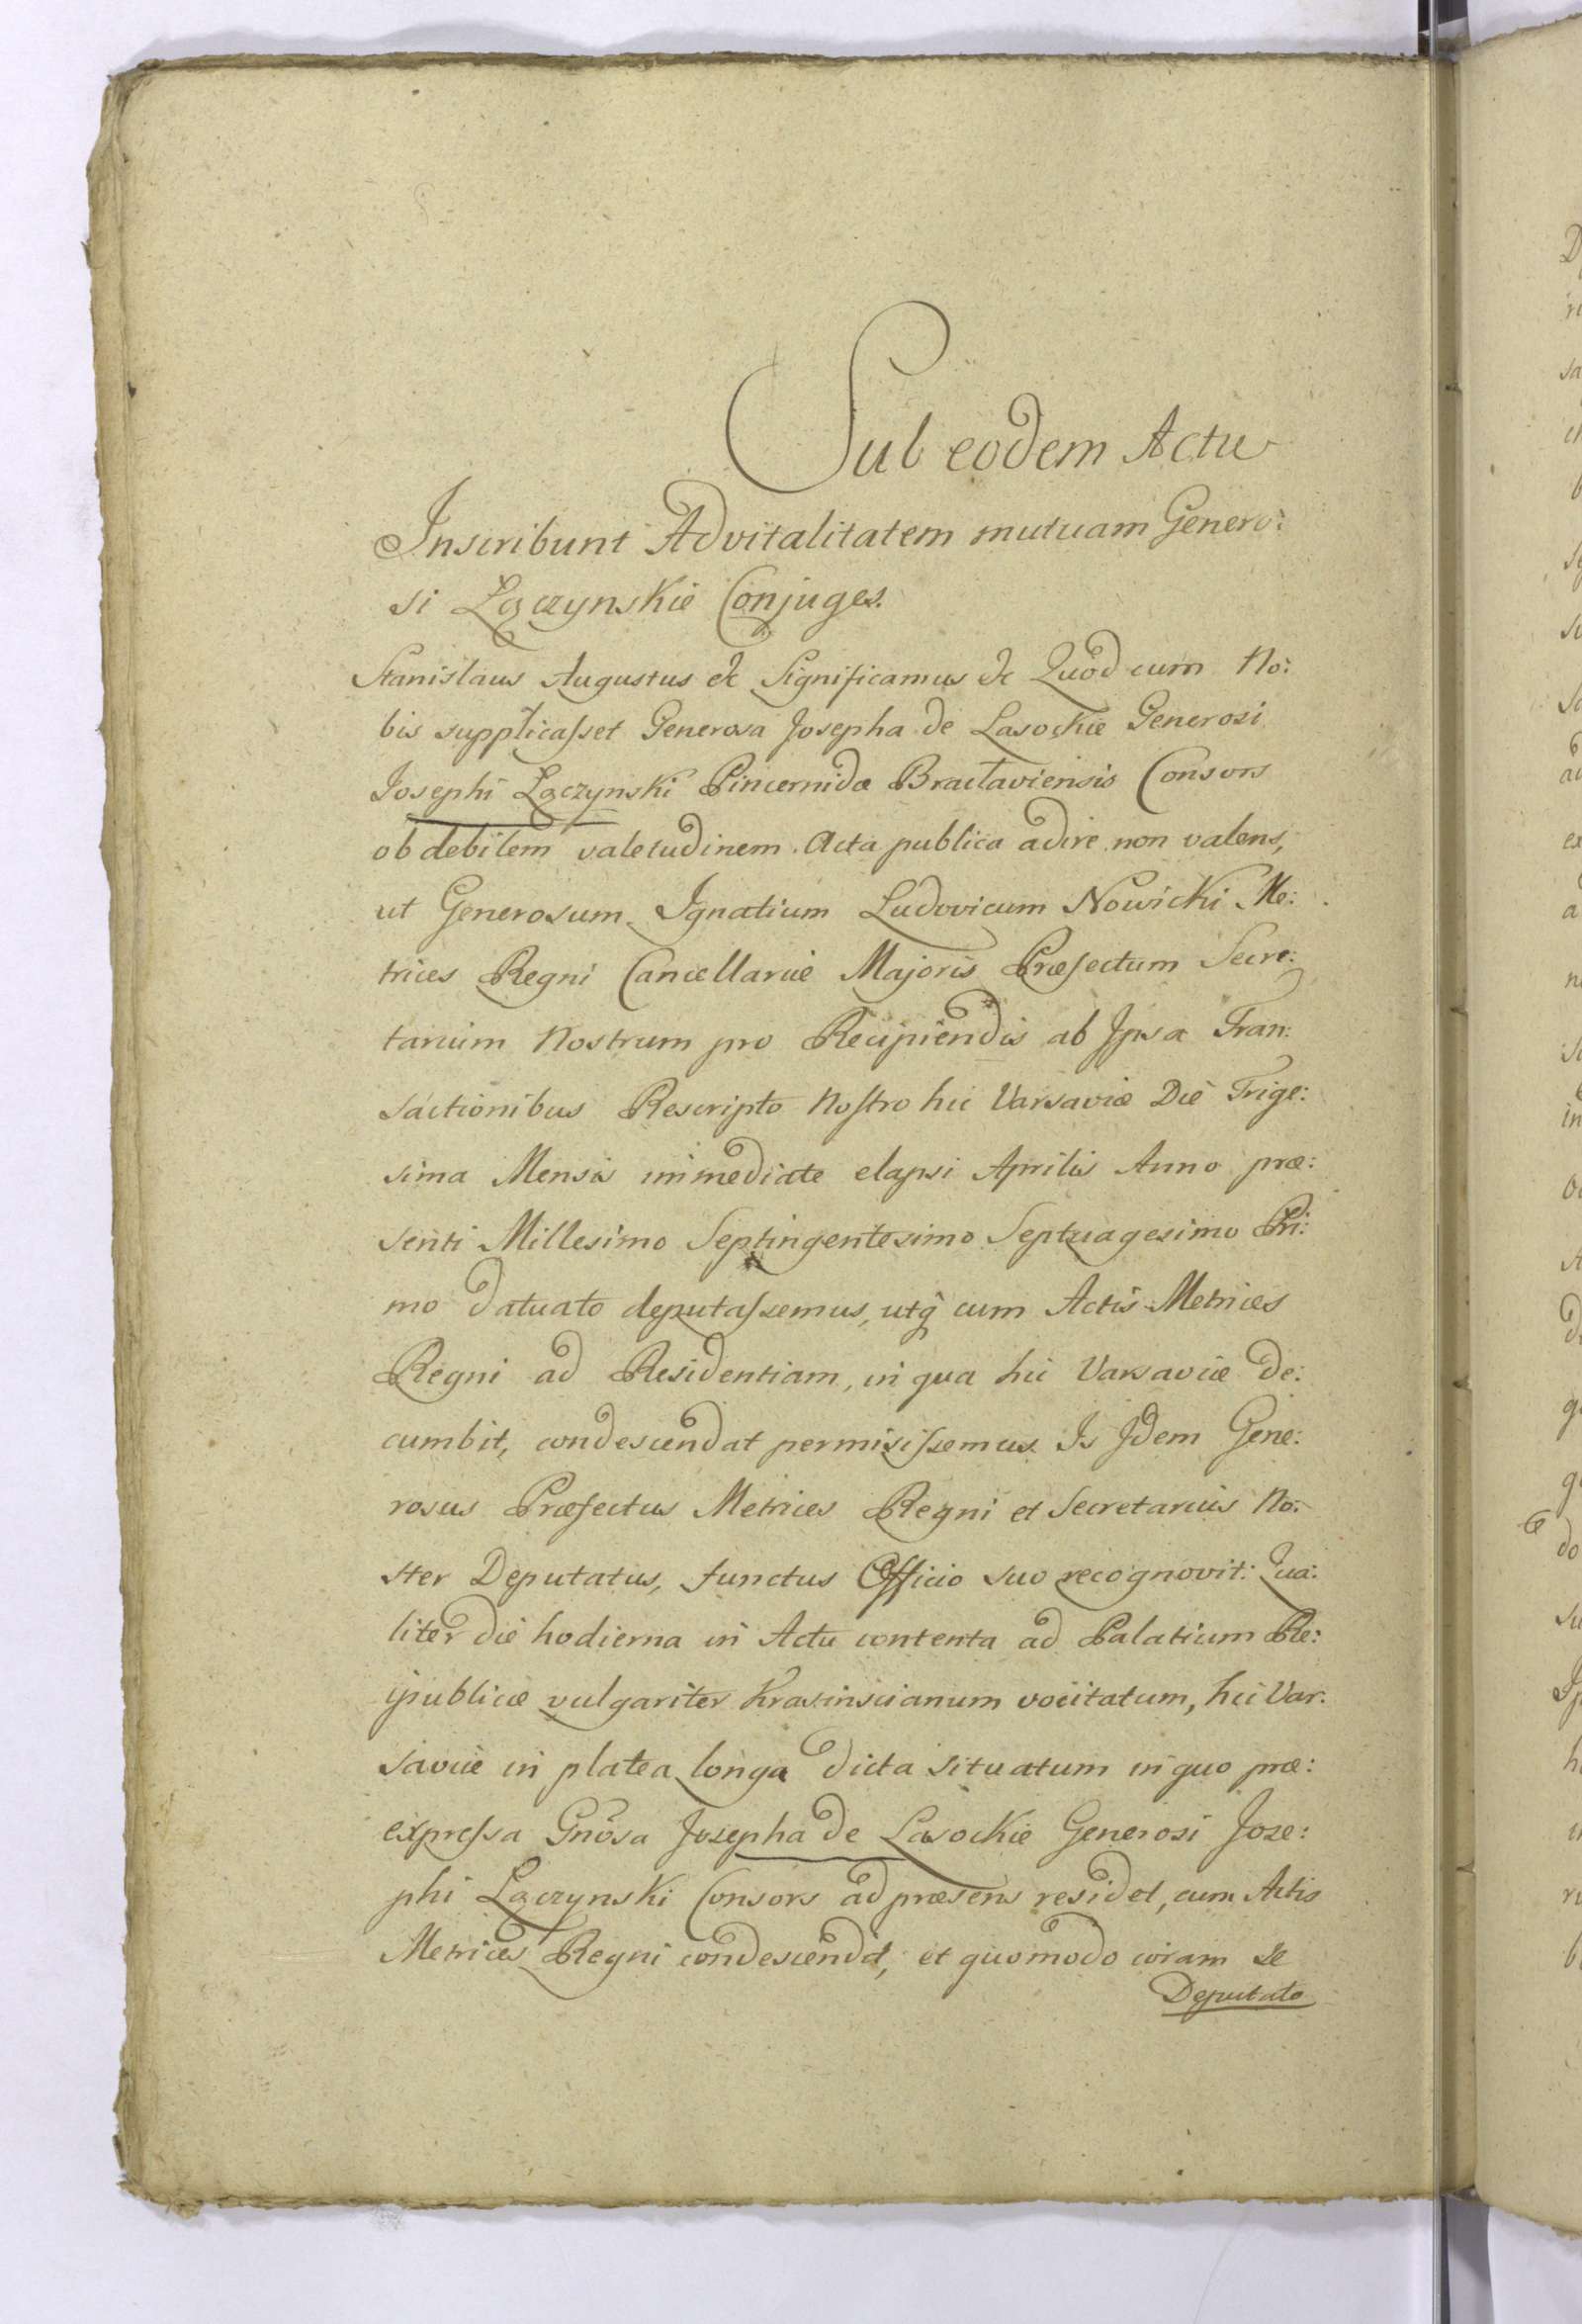 Sub eodem Actu
Inscribunt Advitalitatem mutuam Genero:
si Łączynskie Conjuges.
Stanislaus Augustus &c Significamus &c Quod cum No:
bis supplicaſset Generosa Josepha de Lasockie Generosi
Josephi Łączynski Pincernidæ Bractaviensis Consors
ob debilem valetudinem Acta publica adire non valens,
ut Generosum Ignatium Ludovicum Nowicki Me:
trices Regni Cancellariæ Majoris Præfectum Secre:
tarium Nostrum pro Recipiendis ab Ipsa Tran:
sactionibus Rescripto Noſtro hic Varsaviæ Die Trige:
sima Mensis immediate elapsi Aprilis Anno præ:
senti Millesimo Septingentesimo Septuagesimo Pri:
mo datuato deputaſsemus, utq̃ cum Actis Metrices
Regni ad Residentiam, in qua hic Varsaviæ de:
cumbit, condescendat permisiſsemus. Is Idem Gene:
rosus Præfectus Metrices Regni et Secretarius No:
ster Deputatus, functus Officio suo recognovit: Qua:
liter die hodierna in Actu contenta ad Palatium Re:
ipublicæ vulgariter Krasinscianum vocitatum, hic Var:
saviæ in platea longa dicta situatum in quo præ:
expreſsa Gnõsa Josepha de Lasockie Generosi Jose:
phi Łączynski Consors ad præsens residet, cum Actis
Metrices Regni condescendit, et quomodo coram se
Deputato